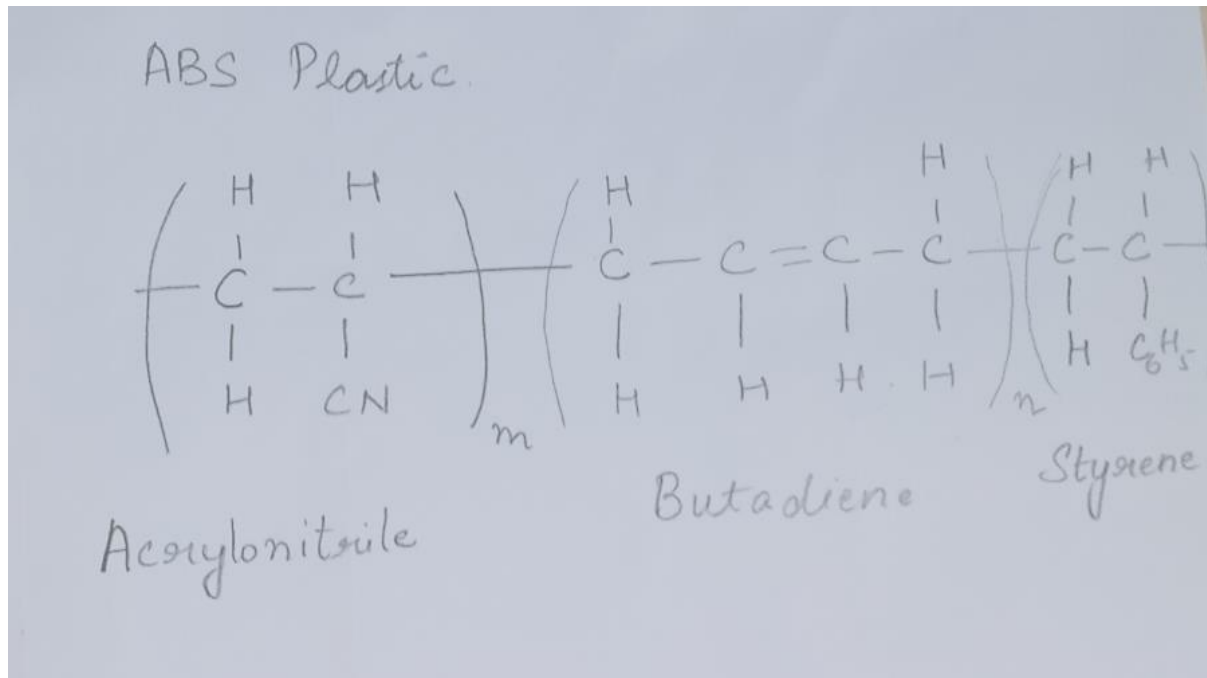 ABS Plastic.
H H H H H H
( - C - C - ) ( C - C = C - C - ) ( C - C -
H CN m H H H H n H C6H5
Acrylonitrile Butadiene Styrene